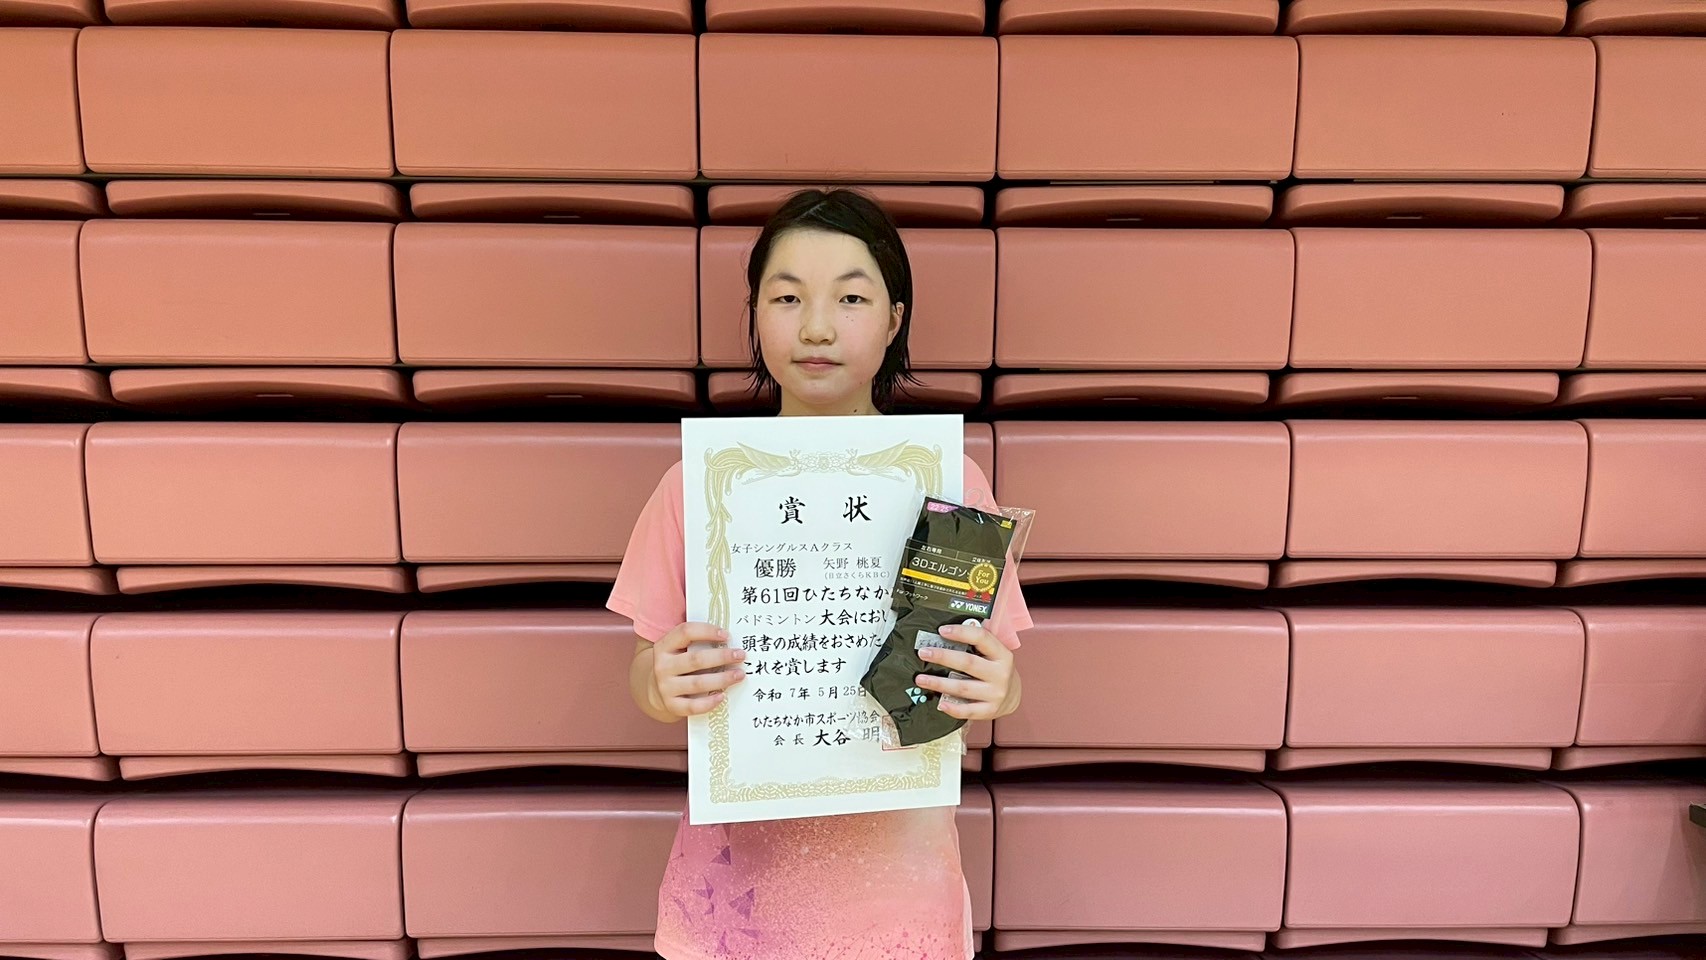 賞 状
女子シングルスAクラス
優勝 矢野 桃夏
(日立さくらKBC)
第61回ひたちなか
バドミントン大会におい
頭書の成績をおさめた
これを賞します
令和 7年 5月 25日
ひたちなか市スポーツ協会
会 長 大谷 明
22-25
左右専用
立体製法
3Dエルゴソ
For You
YONEX